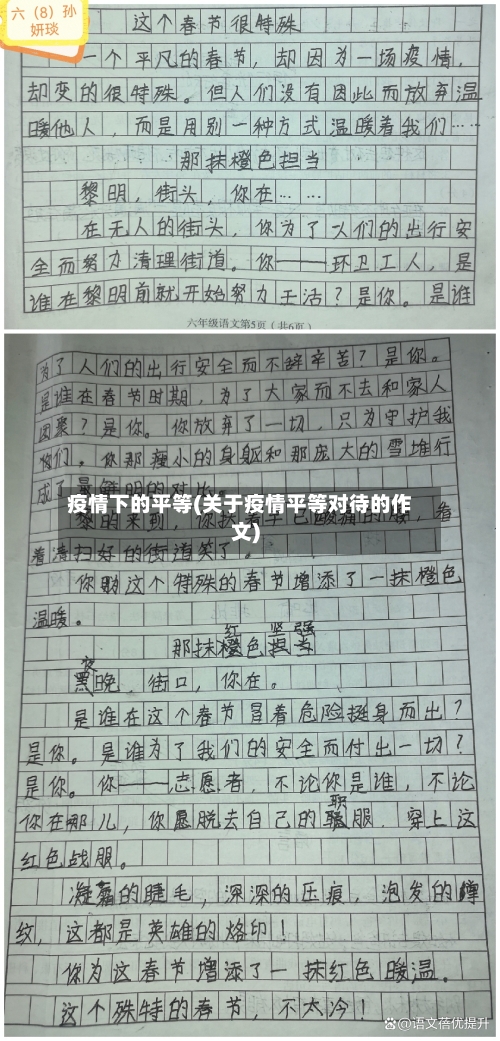 六（8）孙
妍琰
这个春节很特殊
一个平凡的春节，却因为一场疫情，
却变的很特殊。但人们没有因此而放弃温
暖他人，而是用别一种方式温暖着我们……
那抹橙色担当
黎明，街头，你在……
在无人的街头，你为了人们的出行安
全而努力清理街道。你——环卫工人，是
谁在黎明前就开始努力干活？是你。是谁
六年级语文第5页（共6页）
为了人们的出行安全而不辞辛苦？是你。
是谁在春节时期，为了大家而不去和家人
团聚？是你。你放弃了一切，只为守护我
们。你那瘦小的身躯和那庞大的雪堆行
成了最鲜明的对比。
疫情下的平等(关于疫情平等对待的作
文)
黎明来到，你扶着早已酸痛的腰，看
着清扫好的街道笑了。
你助这个特殊的春节增添了一抹橙色
温暖。
红 坚强
那抹橙色担当
夜
黑晚，街口，你在。
是谁在这个春节冒着危险挺身而出？
是你。是谁为了我们的安全而付出一切？
是你。你——志愿者，不论你是谁，不论
你在哪儿，你愿脱去自己的服，穿上这
职
红色战服。
凝霜的睫毛，深深的压痕，泡发的
纹，这都是英雄的烙印！
你为这春节增添了一抹红色暖温。
这个殊特的春节，不太冷！
@语文蓓优提升